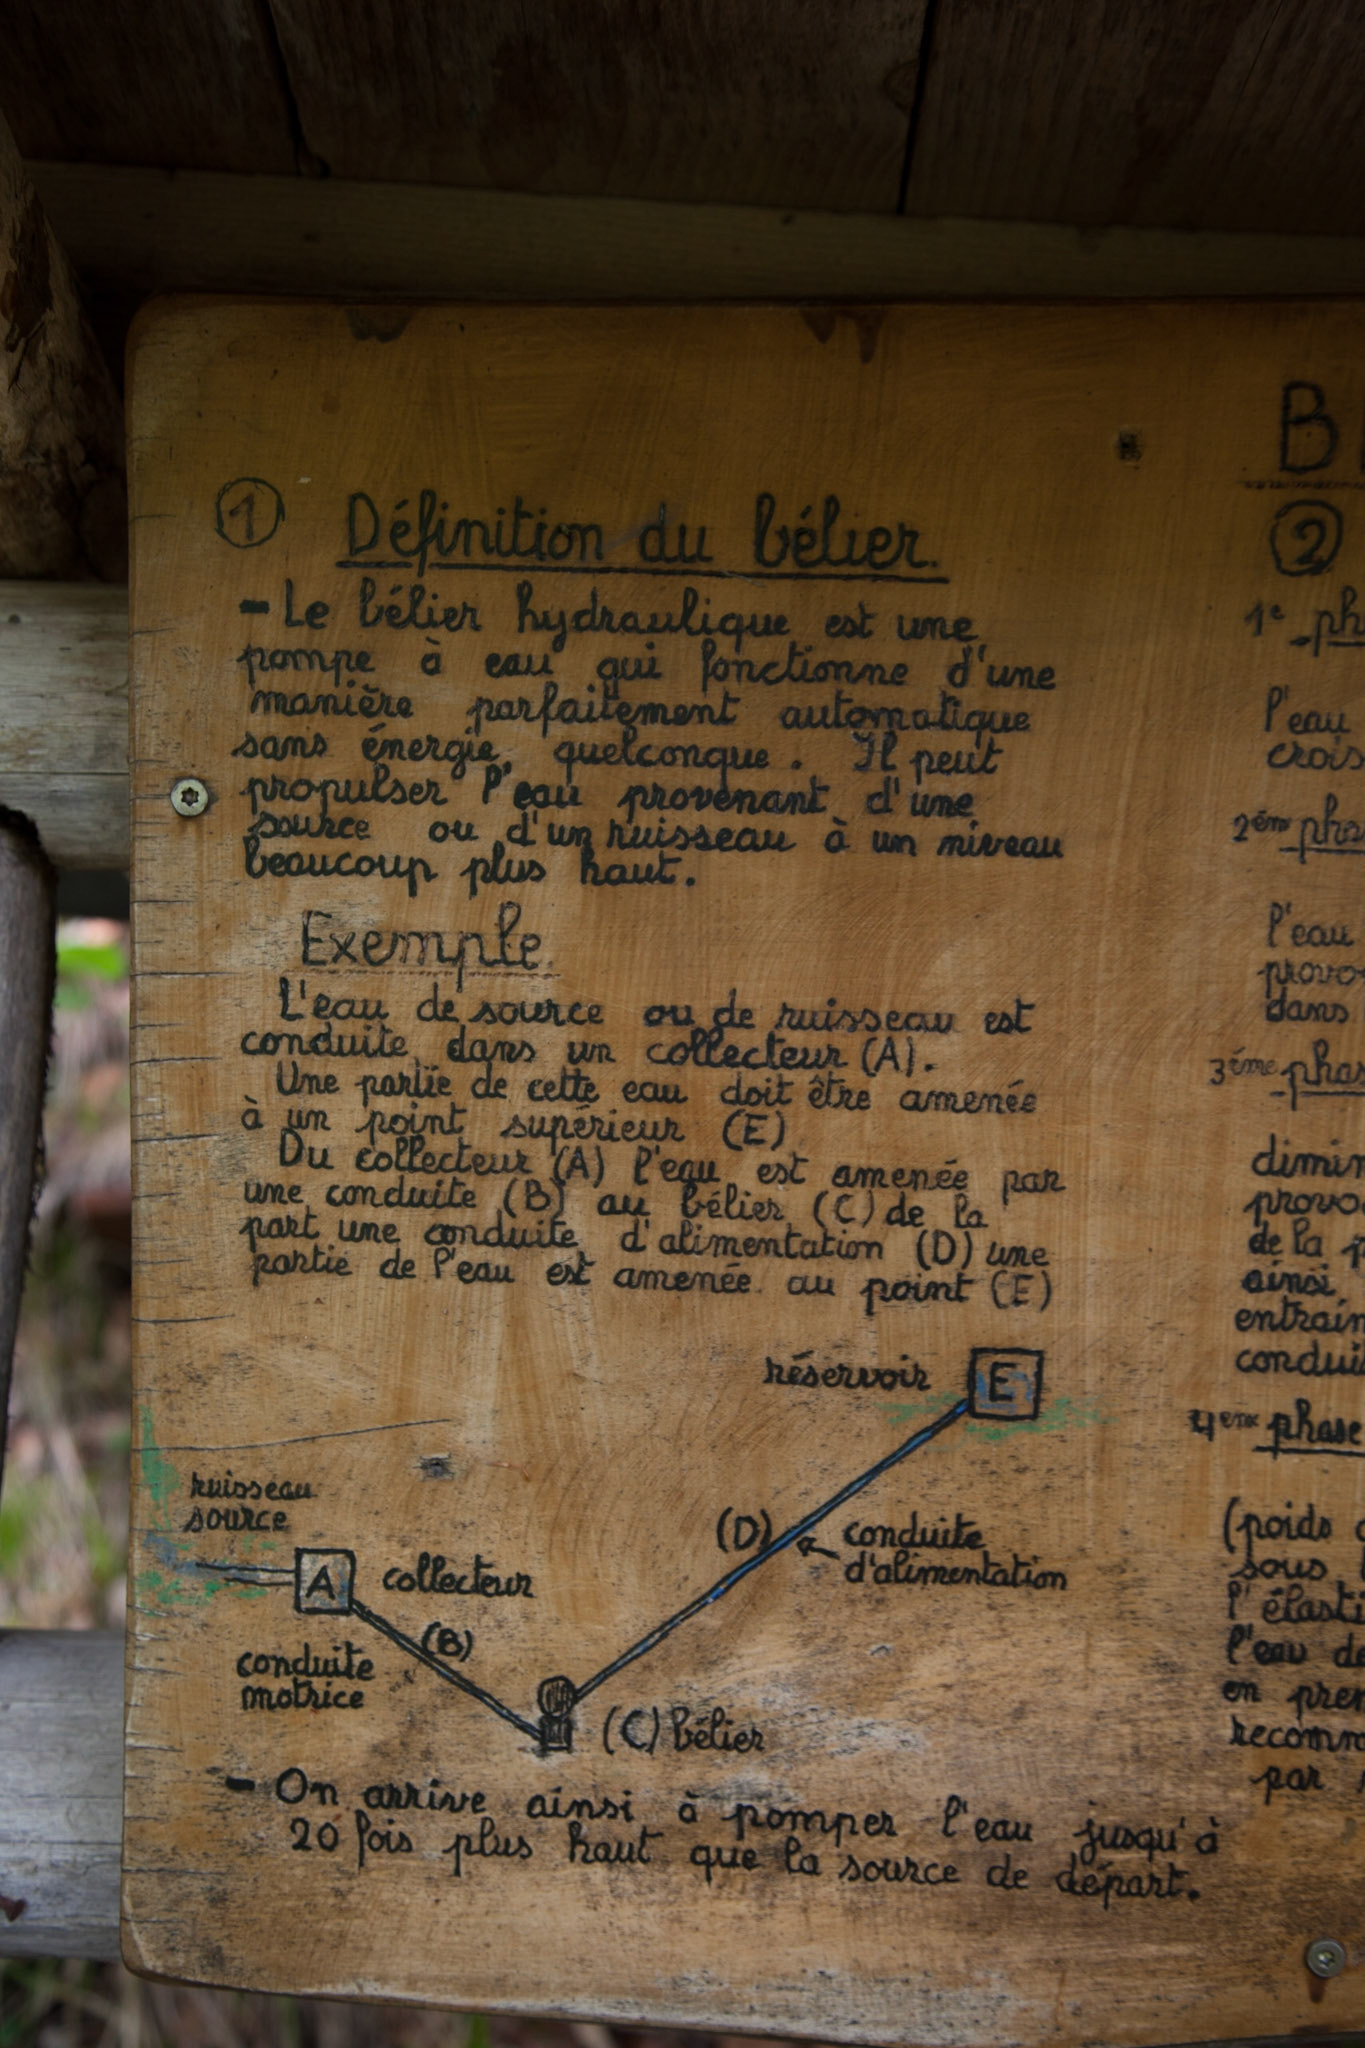 ① Définition du bélier.
- Le bélier hydraulique est une
pompe à eau qui fonctionne d'une
manière parfaitement automatique
sans énergie quelconque. Il peut
propulser l'eau provenant d'une
source ou d'un ruisseau à un niveau
beaucoup plus haut.
Exemple.
L'eau de source ou de ruisseau est
conduite dans un collecteur (A).
Une partie de cette eau doit être amenée
à un point supérieur (E)
Du collecteur (A) l'eau est amenée par
une conduite (B) au bélier (C) de la
part une conduite d'alimentation (D) une
partie de l'eau est amenée au point (E)
réservoir E
ruisseau
source
A collecteur
(B)
conduite
motrice
(C) bélier
(D)
conduite
d'alimentation
- On arrive ainsi à pomper l'eau jusqu'à
20 fois plus haut que la source de départ.
B
②
1e - ph
l'eau
crois
2ème phas
l'eau
provo
dans
3ème phas
dimin
provo
de la p
ainsi
entraîn
condui
4eme phase
(poids
sous
l'élasti
l'eau de
en pre
recomm
par